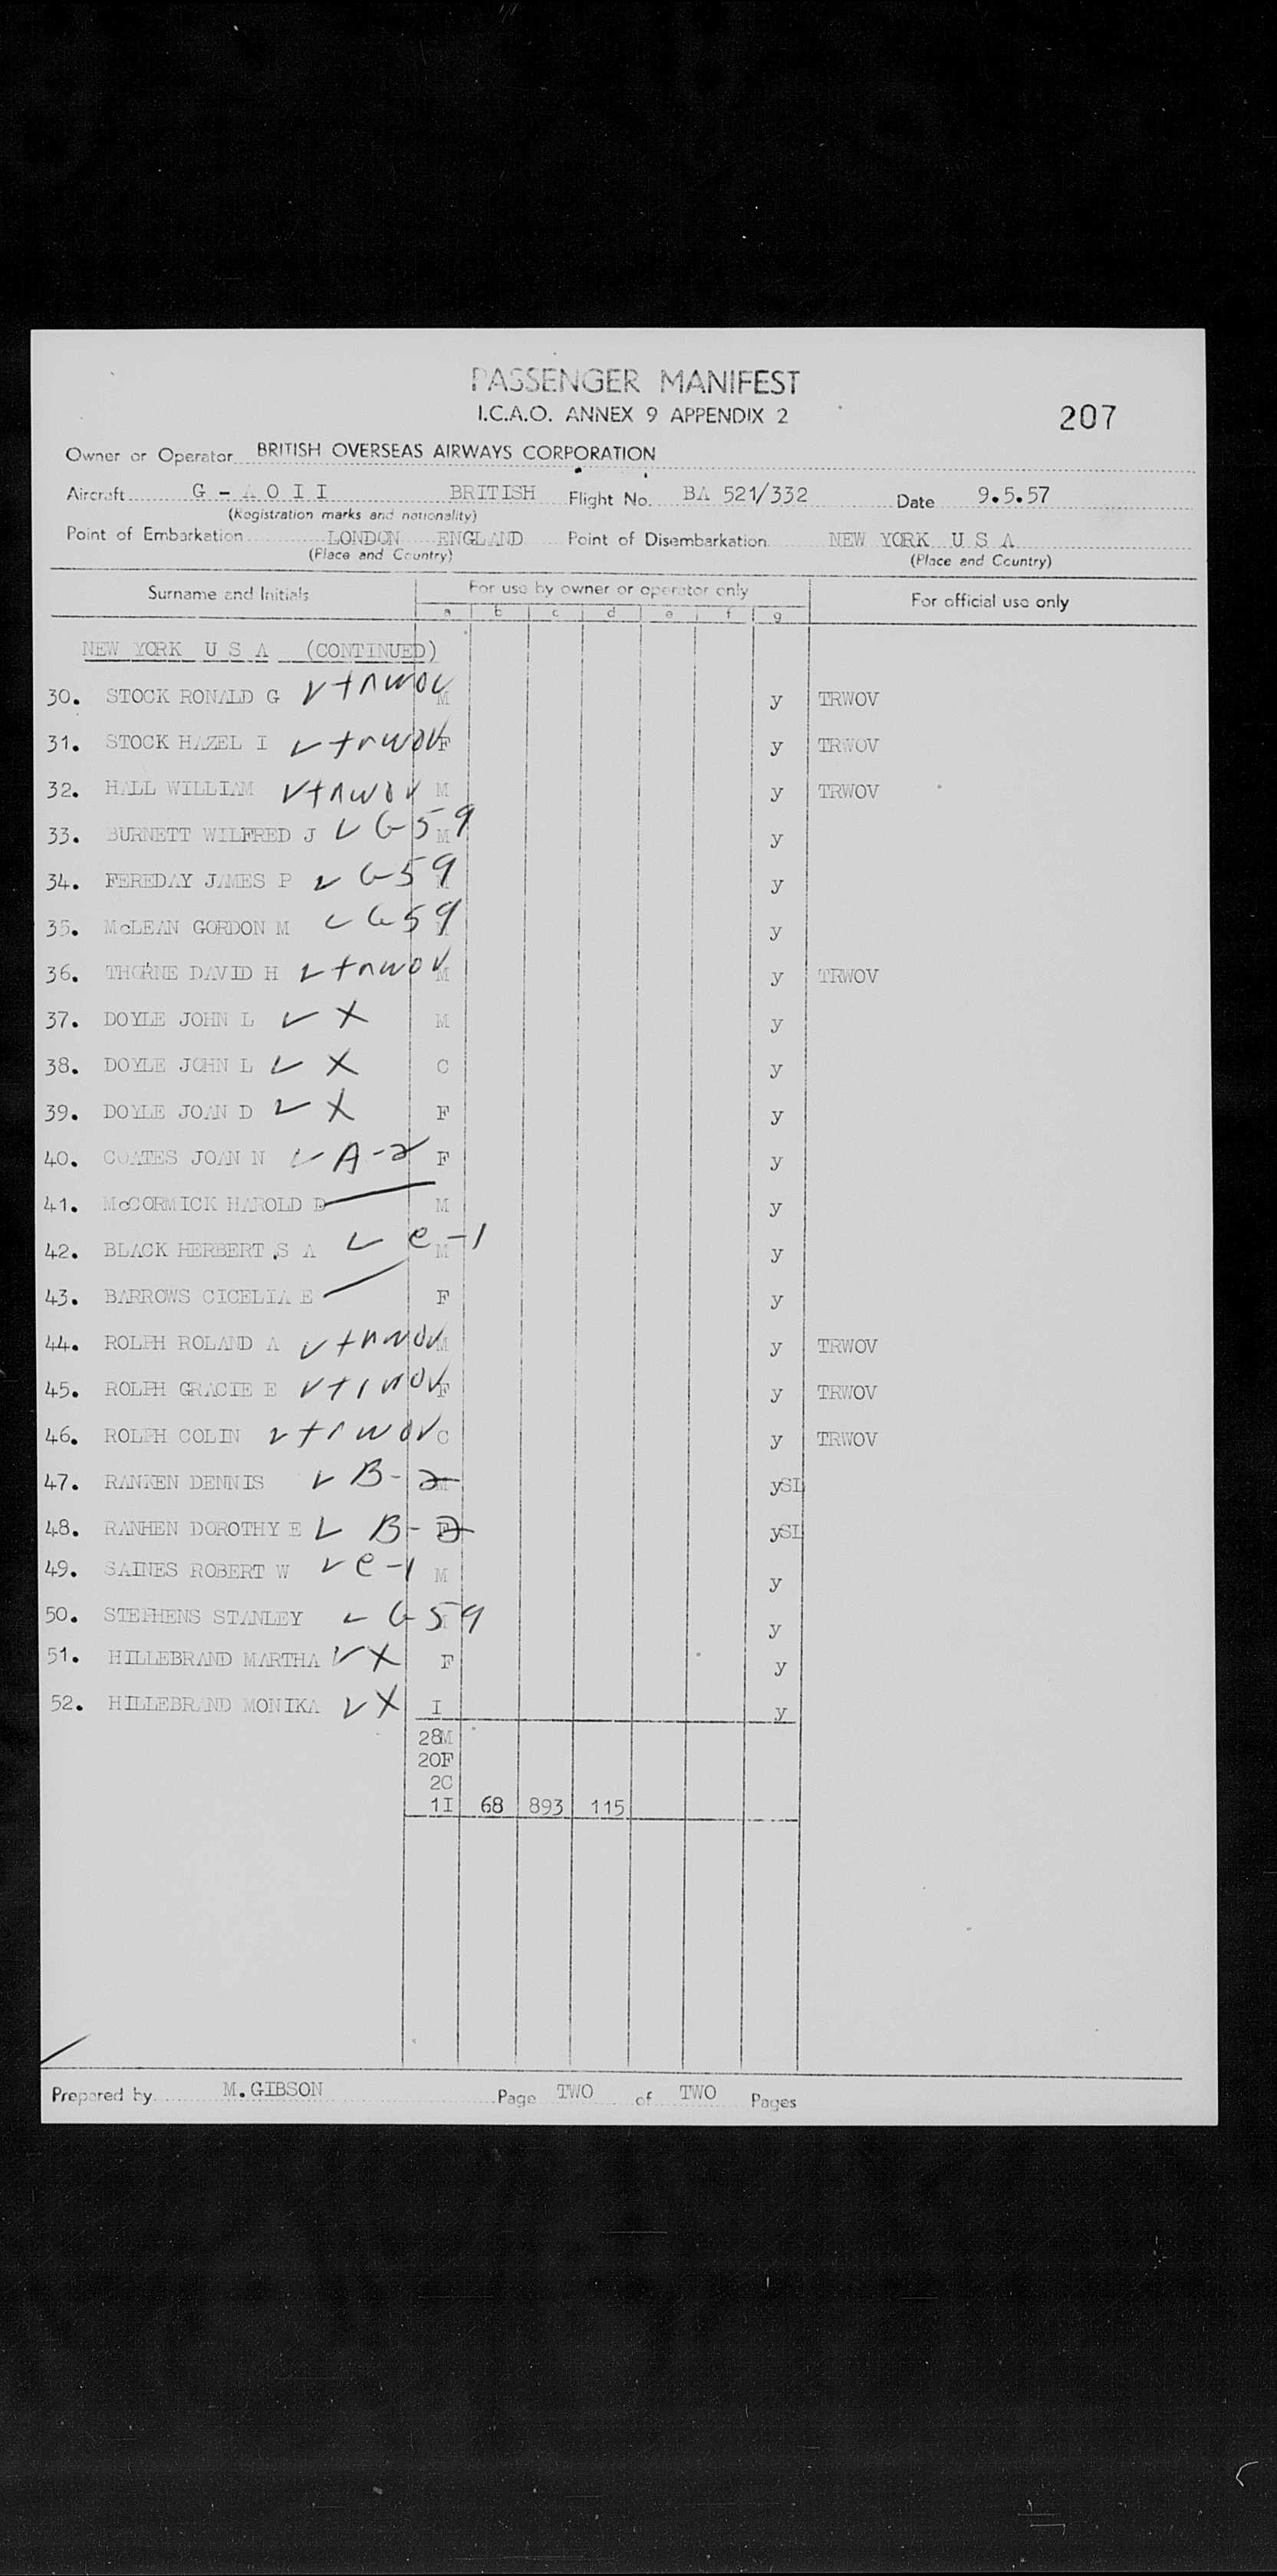 PASSENGER MANIFEST
I.C.A.O. ANNEX 9 APPENDIX 2
207
Owner or Operator BRITISH OVERSEAS AIRWAYS CORPORATION
Aircraft G - A O I I BRITISH Flight No. BA 521/332 Date 9.5.57
(Registration marks and nationality)
Point of Embarkation LONDON ENGLAND Point of Disembarkation NEW YORK U S A
(Place and Country) (Place and Country)
Surname and Initials For use by owner or operator only For official use only
a b c d e f g
NEW YORK U S A (CONTINUED)
30. STOCK RONALD G ✓ trwov M y TRWOV
31. STOCK HAZEL I ✓ trwov F y TRWOV
32. HALL WILLIAM ✓ trwov M y TRWOV
33. BURNETT WILFRED J ✓ G-59 M y
34. FEREDAY JAMES P ✓ G-59 y
35. McLEAN GORDON M ✓ G-59 y
36. THORNE DAVID H ✓ trwov M y TRWOV
37. DOYLE JOHN L ✓ X M y
38. DOYLE JOHN L ✓ X C y
39. DOYLE JOAN D ✓ X F y
40. COATES JOAN N ✓ A-2 F y
41. McCORMICK HAROLD D M y
42. BLACK HERBERT S A ✓ C-1 M y
43. BARROWS CICELIA E F y
44. ROLPH ROLAND A ✓ trwov M y TRWOV
45. ROLPH GRACIE E ✓ trwov F y TRWOV
46. ROLPH COLIN ✓ trwov C y TRWOV
47. RANKEN DENNIS ✓ B-2 M ySL
48. RANHEN DOROTHY E ✓ B-2 F ySL
49. SAINES ROBERT W ✓ C-1 M y
50. STEPHENS STANLEY ✓ G-59 y
51. HILLEBRAND MARTHA ✓ X F y
52. HILLEBRAND MONIKA ✓ X I y
28M
20F
2C
1I 68 893 115
Prepared by M.GIBSON Page TWO of TWO Pages